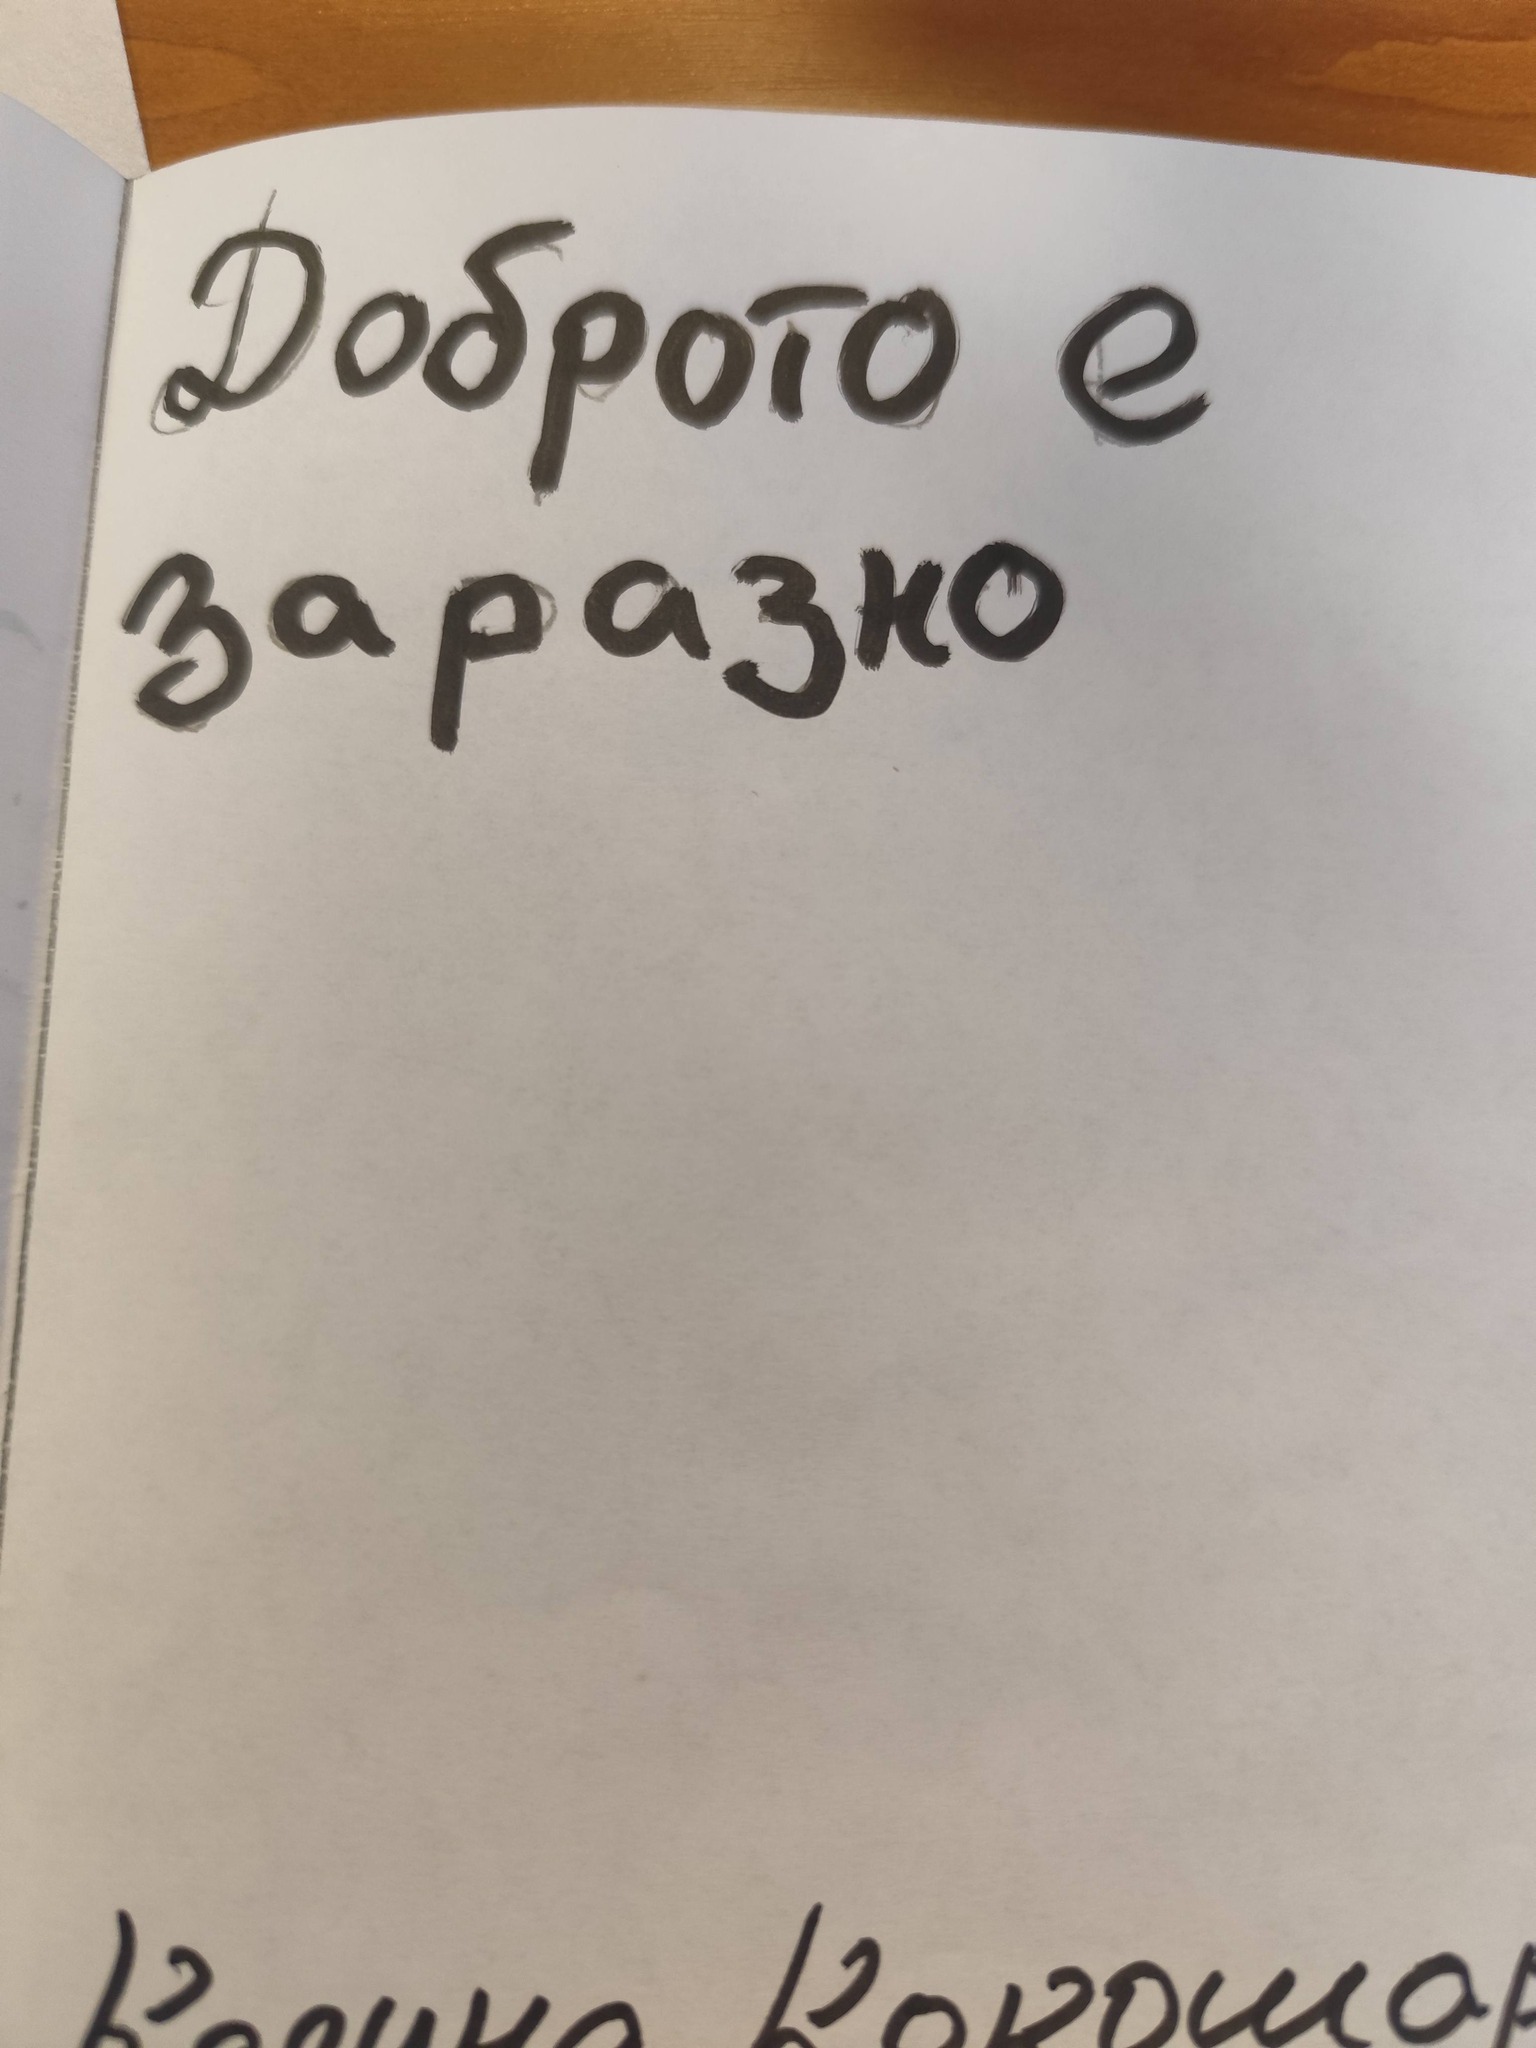 Доброто е
заразно